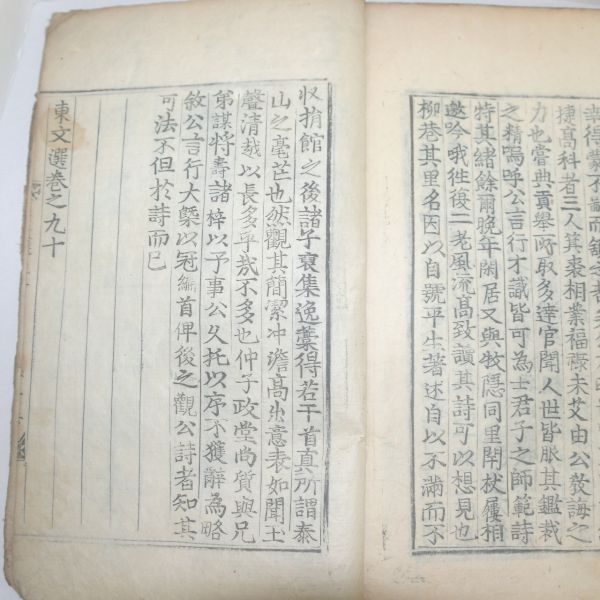 幸得蒙不鄙而
捷高科者三人箕裘相業福祿未艾由公教誨之
力也嘗典貢擧所取多達官聞人世皆服其鑑裁
之精嗚呼公言行才識皆可為士君子之師範詩
特其緒餘爾晩年閑居又與牧隱同里閈杖屨相
邀吟哦往復二老風流高致讀其詩可以想見也
柳巷其里名因以自號平生著述自以不滿而不
収捐館之後諸子裒集逸藁得若干首真所謂泰
山之毫芒也然觀其簡潔冲澹高出意表如聞玉
聲清越以長多乎㢤不多也仲子政堂尚質與兄
弟謀將壽諸梓以予事公久托以序不獲辭為略
敘公言行大槩以冠編首俾後之觀公詩者知其
可法不但於詩而已
東文選卷之九十